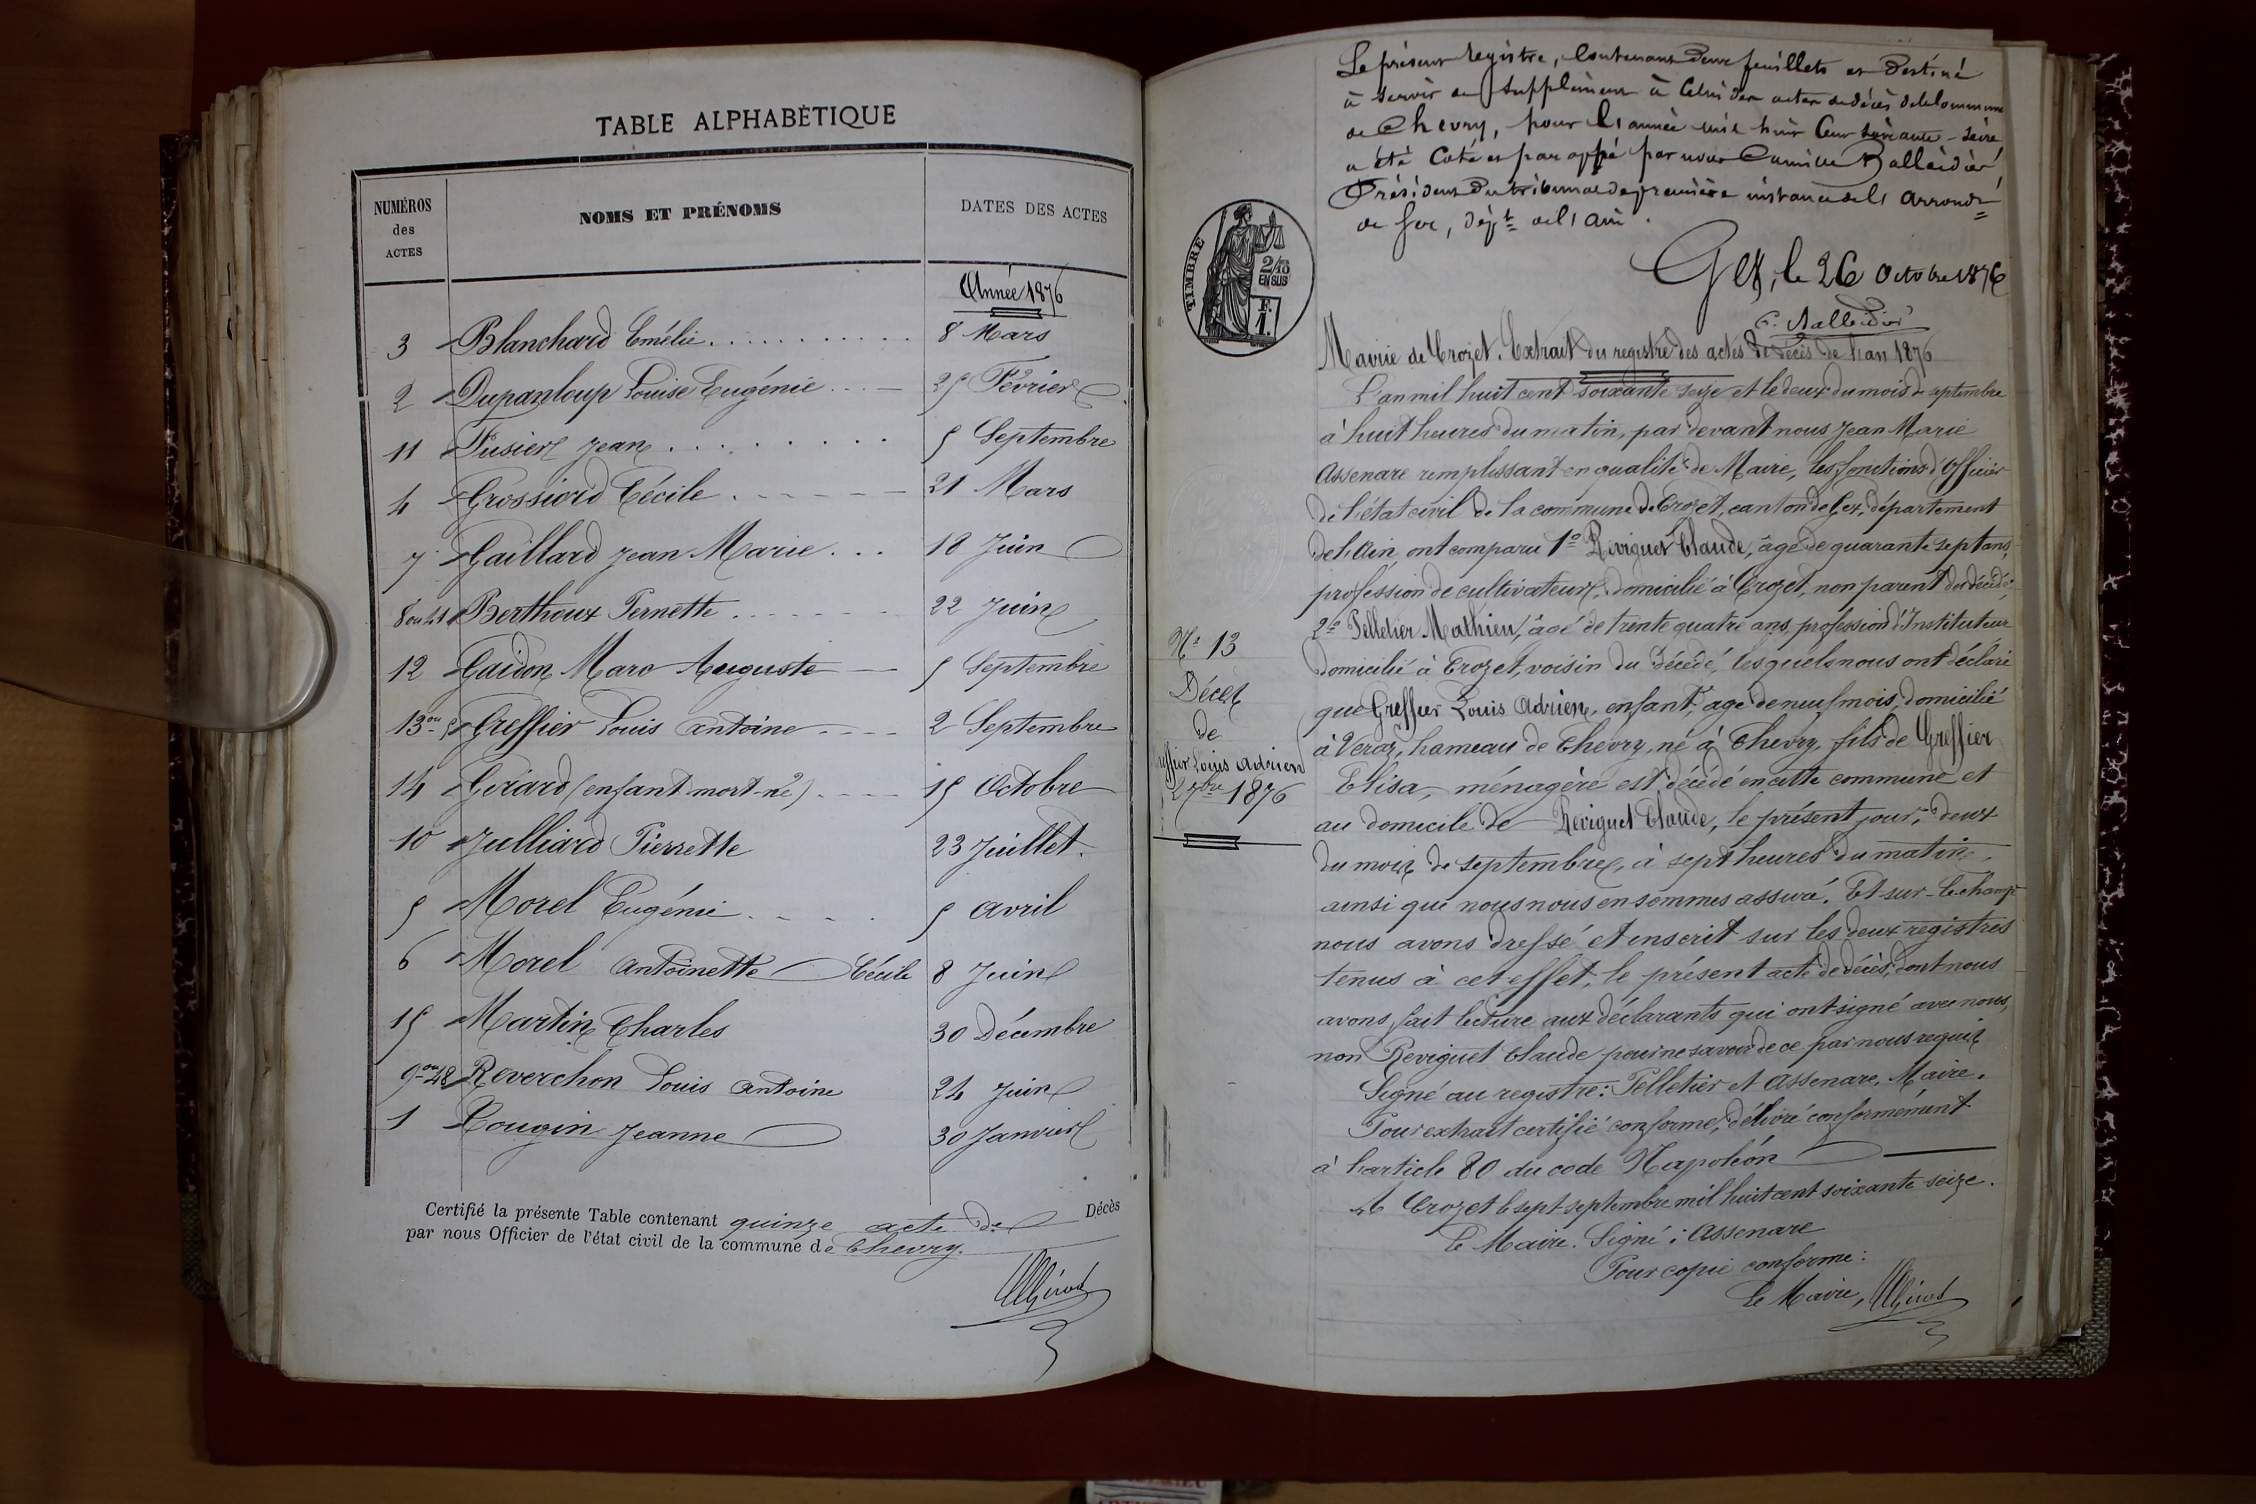 TABLE ALPHABÉTIQUE
NUMÉROS des ACTES
NOMS ET PRÉNOMS
DATES DES ACTES
Année 1876
3 Blanchard Emélie 8 Mars
2 Dupanloup Louise Eugénie 25 Février
11 Fusier Jean 5 Septembre
4 Grossiord Cécile 21 Mars
7 Gaillard Jean Marie 18 Juin
8 Berthoux Pernette 22 Juin
12 Gaidon Marc Auguste 5 Septembre
13 Greffier Louis Antoine 2 Septembre
14 Girard (enfant mort-né) 15 Octobre
10 Julliard Pierrette 23 Juillet.
5 Morel Eugénie 5 Avril
6 Morel Antoinette Cécile 8 Juin
15 Martin Charles 30 Décembre
9 Reverchon Louis Antoine 24 Juin
1 Rougin Jeanne 30 Janvier
Certifié la présente Table contenant quinze acte de Décès
par nous Officier de l'état civil de la commune de Chevry.
Le présent registre, contenant deux feuillets et destiné
à servir de supplément à celui des actes de décès de la commune
de Chevry, pour l'année mil huit cent soixante-seize
a été coté et paraphé par nous Camille Balleidier
Président du tribunal de première instance de l'arrond
de Gex, dépt de l'Ain.
Gex, le 26 Octobre 1876
C. Balleidier
TIMBRE
2/10
EN SUS
F.
1.
Mairie de Crozet. Extrait du registre des actes de décès de l'an 1876
L'an mil huit cent soixante seize et le deux du mois de septembre
à huit heures du matin, par devant nous Jean Marie
Assenare remplissant en qualité de Maire, les fonctions d'Officier
de l'état civil de la commune de Crozet, canton de Gex, département
de l'Ain ont comparu 1° Reviguet Claude, âgé de quarante sept ans,
profession de cultivateur, domicilié à Crozet, non parent du décédé,
2° Pelletier Mathieu, âgé de trente quatre ans, profession d'Instituteur
domicilié à Crozet, voisin du décédé, lesquels nous ont déclaré
que Greffier Louis Adrien, enfant, âgé de neuf mois, domicilié
à Véraz, hameau de Chevry, né à Chevry, fils de Greffier
Elisa, ménagère est décédé en cette commune et
au domicile de Reviguet Claude, le présent jour, deux
du mois de septembre, à sept heures du matin,
ainsi que nous nous en sommes assuré. Et sur-le-champ
nous avons dressé et inscrit sur les deux registres
tenus à cet effet, le présent acte de décès, dont nous
avons fait lecture aux déclarants qui ont signé avec nous,
non Reviguet Claude pour ne savoir de ce par nous requis
Signé au registre: Pelletier et Assenare, Maire.
Pour extrait certifié conforme, délivré conformément
à l'article 80 du code Napoléon
A Crozet le sept septembre mil huit cent soixante seize.
Le Maire. Signé: Assenare
Pour copie conforme:
Le Maire,
N° 13
Décès
de
Louis Adrien
2 7bre 1876